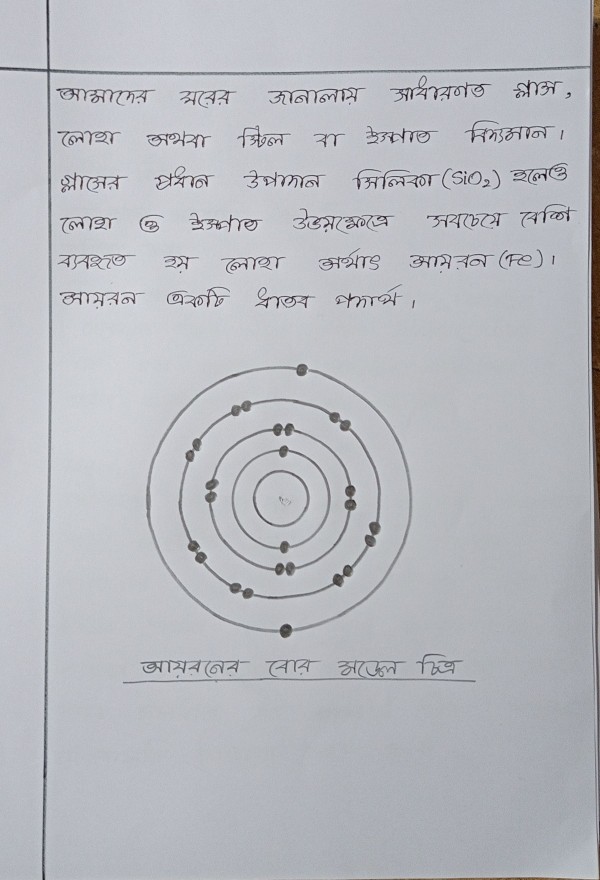 আমাদের ঘরের জানালায় সাধারণত গ্লাস,
লোহা অথবা স্টিল বা ইস্পাত বিদ্যমান।
গ্লাসের প্রধান উপাদান সিলিকা (SiO₂) হলেও
লোহা ও ইস্পাত উভয়ক্ষেত্রে সবচেয়ে বেশি
ব্যবহৃত হয় লোহা অর্থাৎ আয়রন (Fe)।
আয়রন একটি ধাতব পদার্থ।
আয়রনের বোর মডেল চিত্র